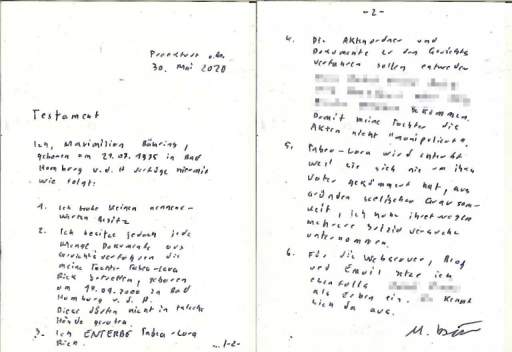 Frankfurt a.M.
30. Mai 2020
Testament
Ich, Maximilian Bähring,
geboren am 21.07.1975 in Bad
Homburg v.d.H verfüge hiermit
wie folgt:
1. Ich habe keinen nennens-
werten Besitz
2. Ich besitze jedoch jede
Menge Dokumente aus
Gerichtsverfahren die
meine Tochter
geboren
am in Bad
Homburg v.d.H.
Diese dürfen nicht in falsche
Hände geraten.
3. Ich ENTERBE
..1-2-
-2-
4. Die Aktenordner und
Dokumente zu den Gerichts
verfahren sollen entweder
bekommen.
Damit meine Tochter die
Akten nicht "manipuliert".
5. wird enterbt
weil sie sich nie um ihren
Vater gekümmert hat, aus
Gründen seelischer Grausam-
keit, ich habe ihretwegen
mehrere Suizid versuche
unternommen.
6. Für die Webserver, Blog
und Email setze ich
ebenfalls
als Erben ein. kennt
sich da aus.